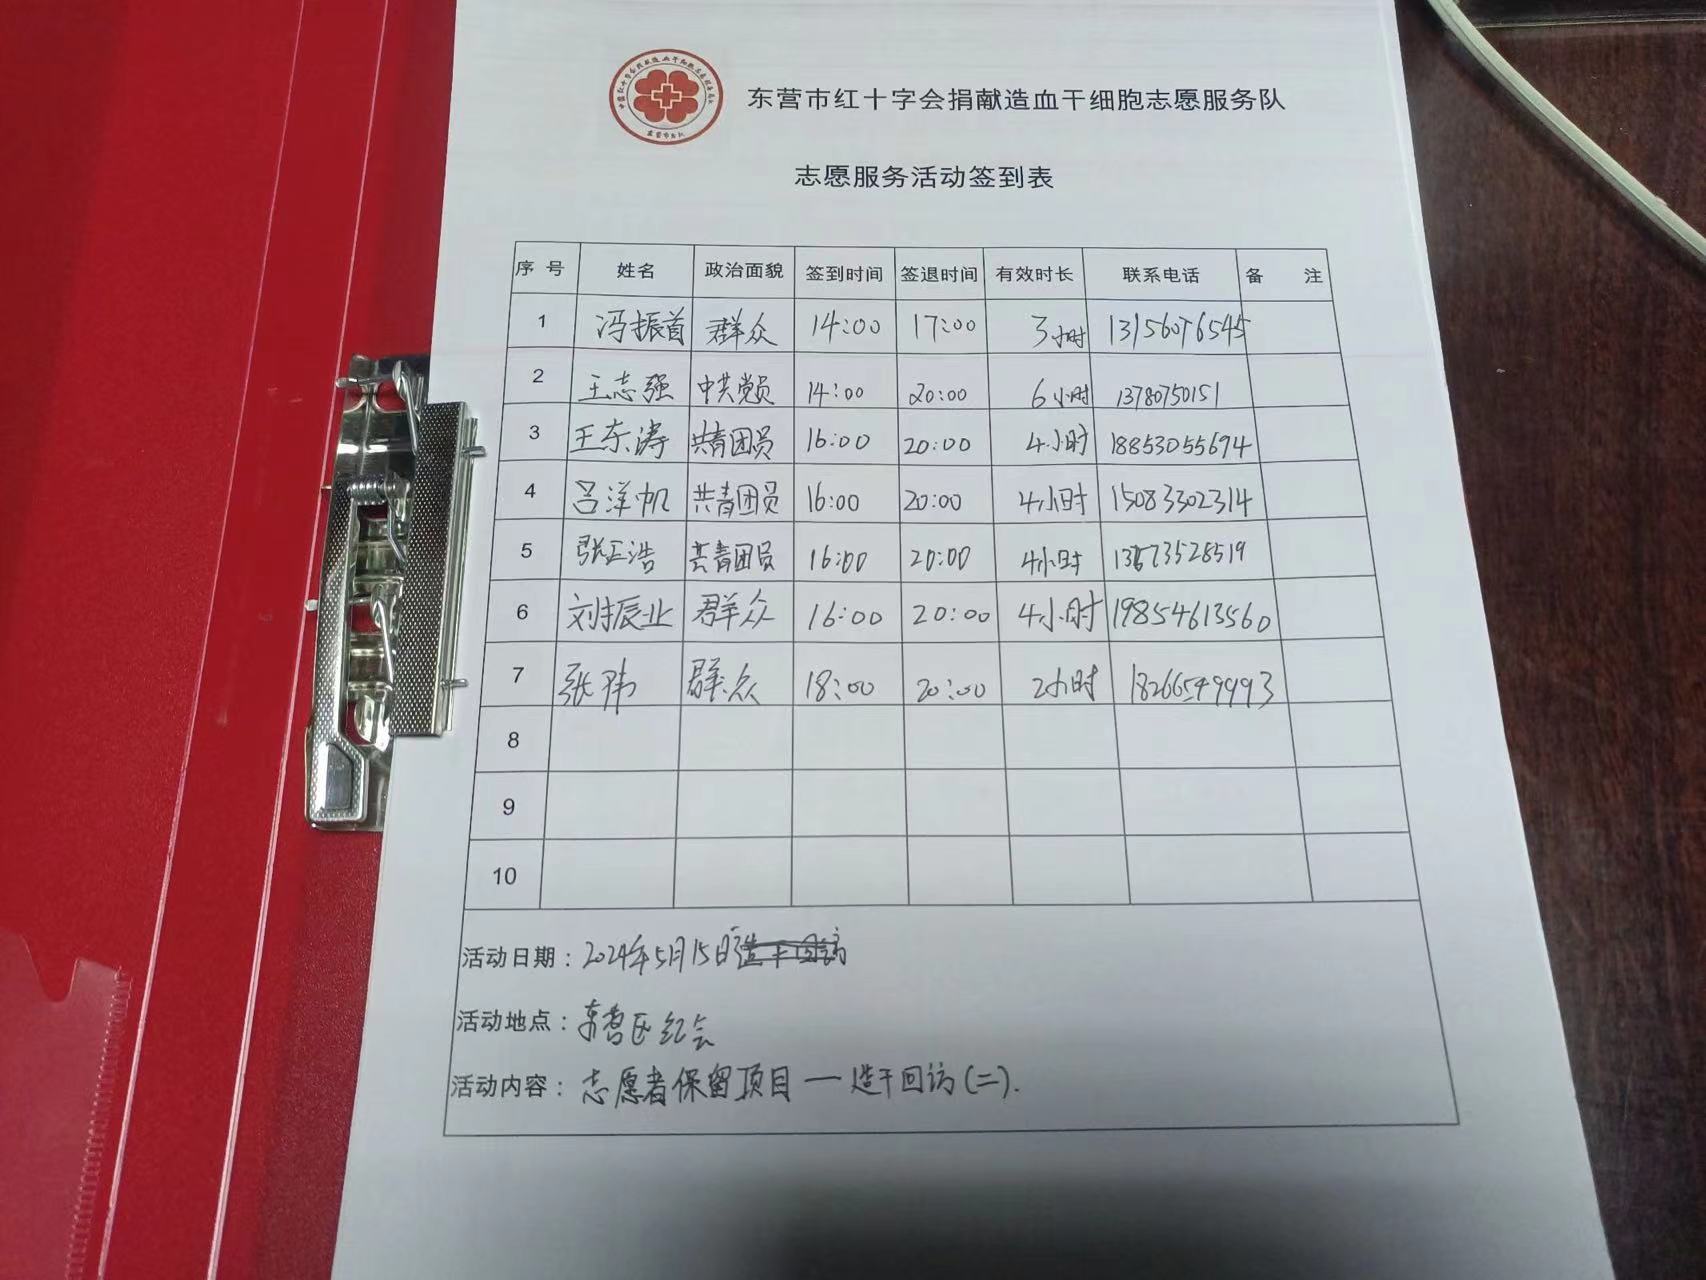 东营市红十字会捐献造血干细胞志愿服务队
志愿服务活动签到表
序号 姓名 政治面貌 签到时间 签退时间 有效时长 联系电话 备注
1 冯振首 群众 14:00 17:00 3小时 13156076545
2 王志强 中共党员 14:00 20:00 6小时 13780750151
3 王东涛 共青团员 16:00 20:00 4小时 18853055694
4 吕洋帆 共青团员 16:00 20:00 4小时 15083302314
5 张正浩 共青团员 16:00 20:00 4小时 13673528519
6 刘振业 群众 16:00 20:00 4小时 19854613560
7 张玮 群众 18:00 20:00 2小时 18266549993
8
9
10
活动日期：2024年5月15日
活动地点：东营区红会
活动内容：志愿者保留项目一造干回访(二).